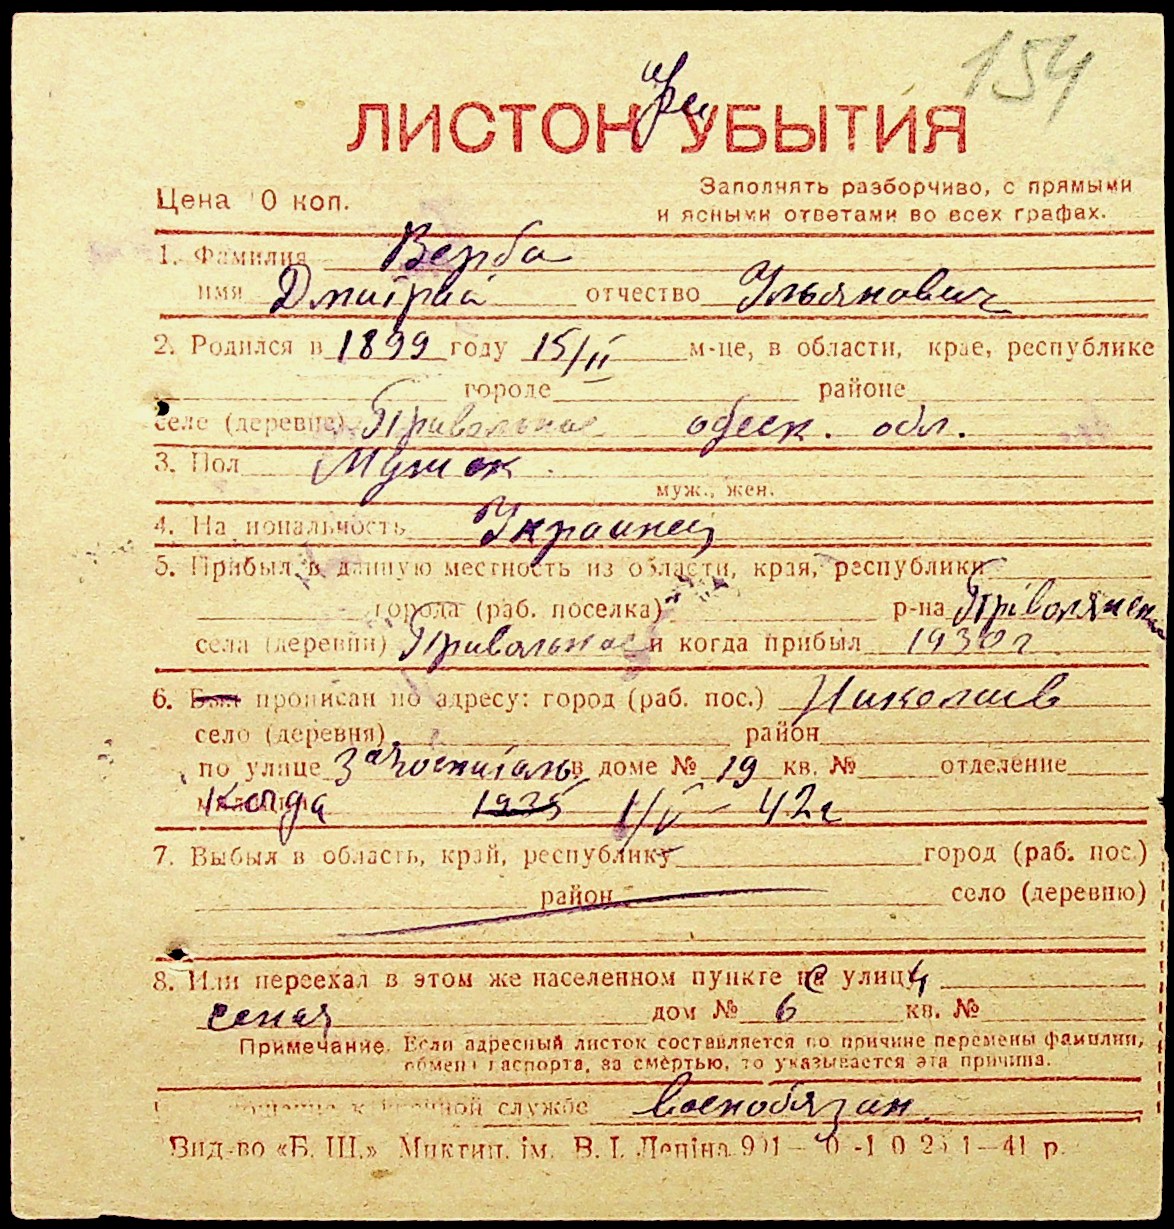 154
ЛИСТОК при УБЫТИЯ
Цена 10 коп.
Заполнять разборчиво, с прямыми
и ясными ответами во всех графах.
1. Фамилия Верба
имя Дмитрий отчество Ульянович
2. Родился в 1899 году 15/II м-це, в области, крае, республике
городе районе
селе (деревне) Привольное одеск. обл.
3. Пол Мужск
муж., жен.
4. Национальность Украинец
5. Прибыл в данную местность из области, края, республики
города (раб. поселка) р-на Привольнен
села (деревни) Привольное и когда прибыл 1930 г
6. Был прописан по адресу: город (раб. пос.) Николаев
село (деревня) район
по улице 3я Госпиталь в доме № 19 кв. № отделение
Когда 1935 1/V - 42г
7. Выбыл в область, край, республику город (раб. пос.)
район село (деревню)
8. Или переехал в этом же населенном пункте с улицы
сеная дом № 6 кв. №
Примечание. Если адресный листок составляется по причине перемены фамилии,
обмена паспорта, за смертью, то указывается эта причина.
к военной службе военобязан.
Вид-во «Б. Ш.» Миктип. ім. В. І. Леніна 41 р.